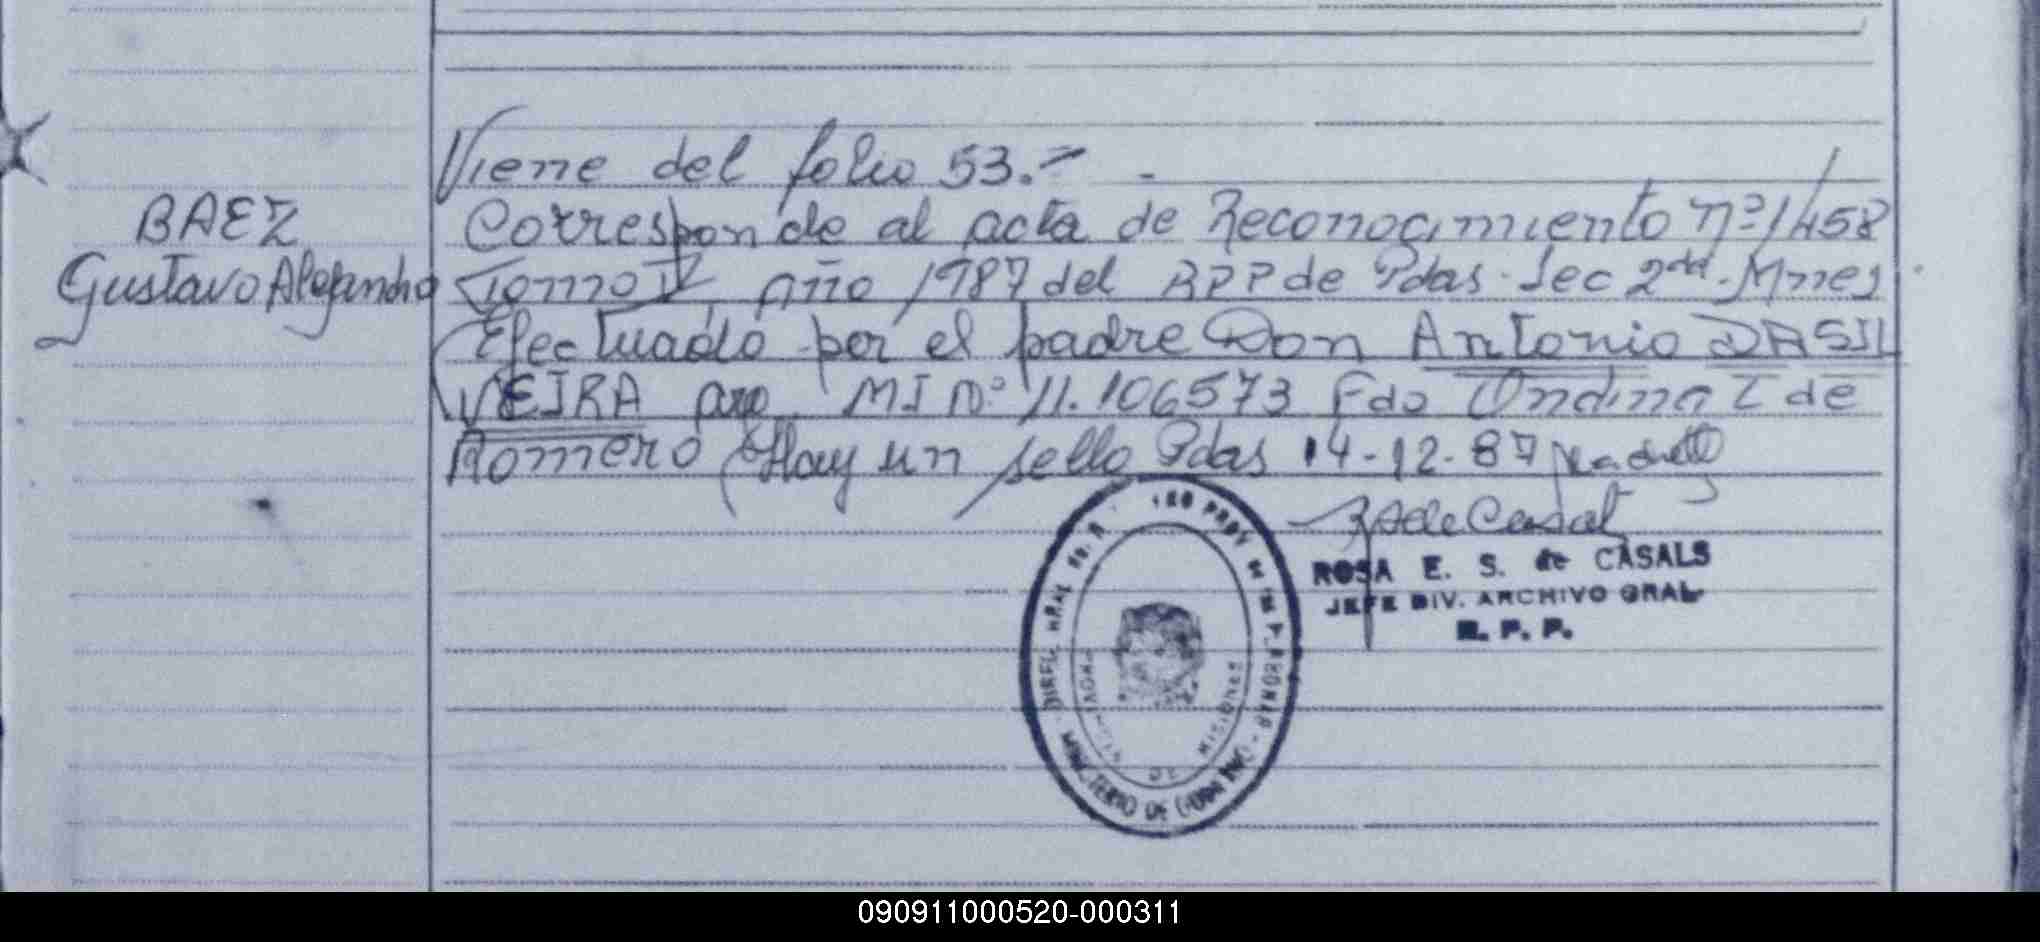 Viene del folio 53.=
BAEZ
Gustavo Alejandro
Corresponde al acta de Reconocimiento nº 1458
Tomo IV, año 1987 del RPP de Pdas. Sec 2da. Mnes
Efectuado por el padre Don Antonio DASIL
VEIRA arg. MI Nº 11.106573 Fdo Ondina Z de
Romero Hay un sello Pdas 14-12-87
ROSA E. S. de CASALS
JEFE DIV. ARCHIVO GRAL.
R. P. P.
PROVINCIA DE MISIONES
MINISTERIO DE
090911000520-000311